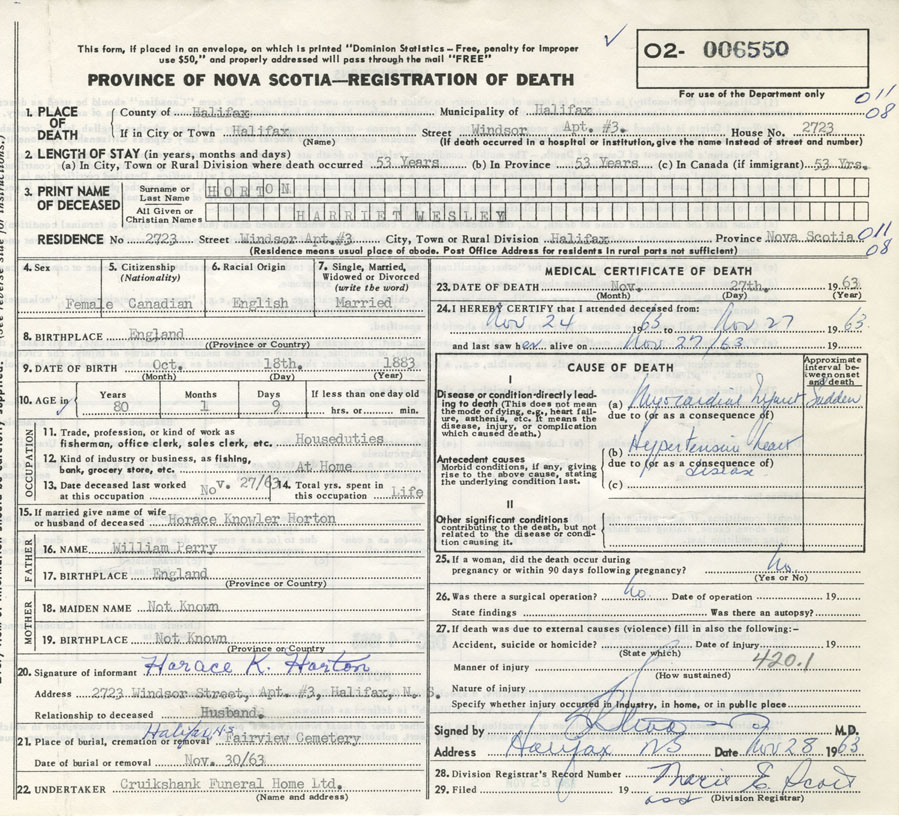 This form, if placed in an envelope, on which is printed "Dominion Statistics – Free, penalty for improper
use $50," and properly addressed will pass through the mail "FREE"
O2- 006550
For use of the Department only
PROVINCE OF NOVA SCOTIA—REGISTRATION OF DEATH
011
08
1. PLACE OF DEATH
County of Halifax Municipality of Halifax
If in City or Town Halifax Street Windsor Apt. #3. House No. 2723
(Name) (If death occurred in a hospital or institution, give the name instead of street and number)
2. LENGTH OF STAY (in years, months and days)
(a) In City, Town or Rural Division where death occurred 53 Years (b) In Province 53 Years (c) In Canada (if immigrant) 53 Yrs.
3. PRINT NAME OF DECEASED
Surname or Last Name HORTON
All Given or Christian Names HARRIET WESLEY
RESIDENCE No 2723 Street Windsor Apt.#3 City, Town or Rural Division Halifax Province Nova Scotia
011
08
(Residence means usual place of abode. Post Office Address for residents in rural parts not sufficient)
4. Sex Female
5. Citizenship (Nationality) Canadian
6. Racial Origin English
7. Single, Married, Widowed or Divorced (write the word) Married
8. BIRTHPLACE England
((Province or Country)
9. DATE OF BIRTH Oct. 18th. 1883
(Month) (Day) (Year)
10. AGE in Years 80 Months 1 Days 9 If less than one day old hrs. or min.
OCCUPATION
11. Trade, profession, or kind of work as
fisherman, office clerk, sales clerk, etc. Houseduties
12. Kind of industry or business, as fishing,
bank, grocery store, etc. At Home
13. Date deceased last worked at this occupation Nov. 27/63
14. Total yrs. spent in this occupation life
15. If married give name of wife
or husband of deceased Horace Knowler Horton
FATHER
16. NAME William Perry
17. BIRTHPLACE England
(Province or Country)
MOTHER
18. MAIDEN NAME Not Known
19. BIRTHPLACE Not Known
(Province or Country
20. Signature of informant Horace K. Horton
Address 2723 Windsor Street, Apt. #3, Halifax, N. S.
Relationship to deceased Husband.
Halifax NS
21. Place of burial, cremation or removal Fairview Cemetery
Date of burial or removal Nov. 30/63
22. UNDERTAKER Cruikshank Funeral Home Ltd.
(Name and address)
MEDICAL CERTIFICATE OF DEATH
23. DATE OF DEATH Nov. 27th. 1963
(Month) (Day) (Year)
24. I HEREBY CERTIFY that I attended deceased from:
Nov. 24 1963 to Nov 27 1963
and last saw her alive on Nov 27/63 19
CAUSE OF DEATH
Approximate interval between onset and death
I
Disease or condition directly leading to death (This does not mean the mode of dying, e.g., heart failure, asthenia, etc. It means the disease, injury, or complication which caused death.)
(a) Myocardial Infarct Sudden
due to (or as a consequence of)
Antecedent causes
Morbid conditions, if any, giving rise to the above cause, stating the underlying condition last.
(b) Hypertensive heart
due to (or as a consequence of)
disease
(c)
II
Other significant conditions
contributing to the death, but not related to the disease or condition causing it.
25. If a woman, did the death occur during
pregnancy or within 90 days following pregnancy? No
(Yes or No)
26. Was there a surgical operation? No Date of operation 19
State findings Was there an autopsy?
27. If death was due to external causes (violence) fill in also the following:–
Accident, suicide or homicide? Date of injury 19
(State which)
Manner of injury 420.1
(How sustained)
Nature of injury
Specify whether injury occurred in Industry, in home, or in public place
Signed by M.D.
Address Halifax NS Date Nov 28 1963
28. Division Registrar's Record Number
29. Filed 19 Marie E Scott
(Division Registrar)